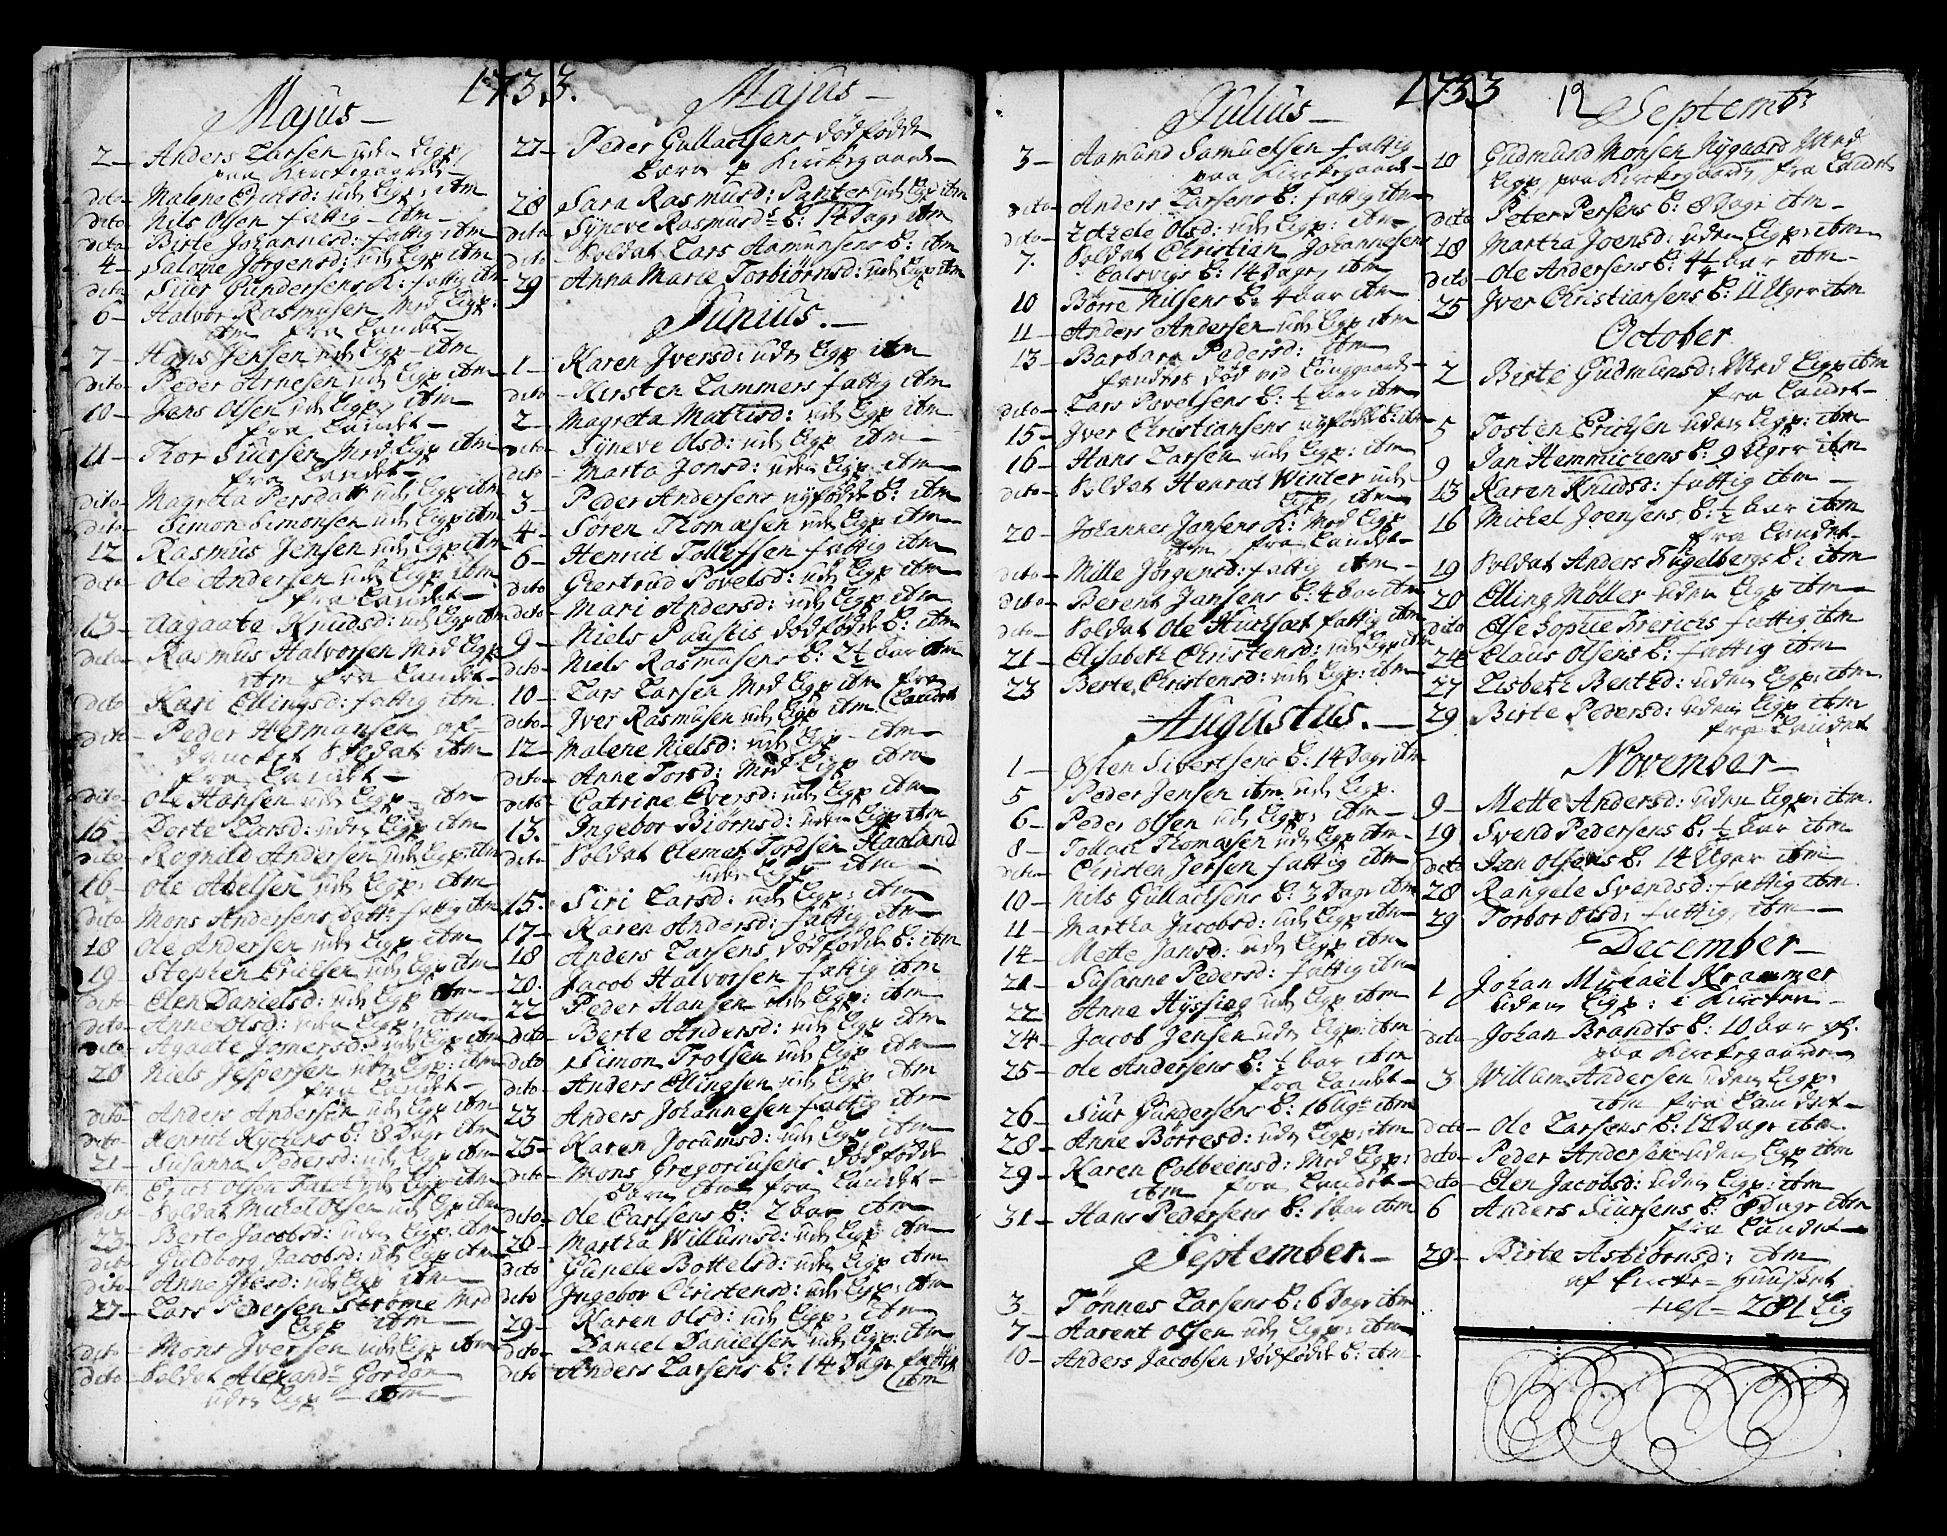 1733.
Majus
2 Anders Larsen uden Ligp
paa Kirckegaarde
dito Malene Ericksd: uds Ligp, itm
dito Nils Olsen fattig itm
dito Birte Johannesd: fattig itm
4 Salome Jørgensd: uds Ligp itm
dito Siur Gundersens K: fattig itm
6 Halvor Rasmusen Med Ligp:
itm fra Landet
7 Hans Jensen uds Ligp itm
dito Peder Arnesen uds Ligp itm
10 Jens Olsen uds Ligp, itm
fra Landet
11 Tor Siursen Med Ligp itm
fra Landet
dito Magreta Persdatt uds Ligp itm
dito Simon Simonsen uds Ligp itm
12 Rasmus Jensen uds Ligp itm
dito Ole Andersen uds Ligp itm
fra Landet
13 Aagaate Knudsd: uds Ligp itm
dito Rasmus Halvorsen Med Ligp
itm fra Landet
dito Kari Ellingsd: fattig itm
dito Peder Hermansen af-
dancket Soldat itm
fra Landet
dito Ole Hansen uds Ligp itm
15 Dorte Larsd: uden Ligp itm
dito Rognild Andersen uds Ligp itm
16 Ole Abelsen uds Ligp: itm
dito Mons Andersens Datt: fattig itm
18 Ole Andersen uds Ligp itm
19 Stephen Ericksen uds Ligp itm
dito Elen Danielsd: uds Ligp itm
dito Anne Olsd: uden Ligp, itm
dito Agaate Jomersd: uds Ligp itm
20 Niels Jespersen uds Ligp: itm
fra Landet
dito Anders Andersen uds Ligp itm
dito Henrick Kyckens B: 8 Dage itm
21 Susanna Pedersd: uds Ligp itm
dito Erick Olsen uds Ligp itm
dito Soldat Mickel Olsen uds Ligp itm
23 Berte Jacobsd: uden Ligp itm
dito Guldborg Jacobsd: uds Ligp itm
dito Anne Jversd: uds Ligp itm
27 Lars Pedersen Strøme Med
Ligp itm
dito Mons Jversen uds Ligp itm
dito Soldat Alexandr Gordon
uden Ligp itm
Majus
27 Peder Gullacksens dødfødde
barn p Kirckegaarde
28 Sara Rasmusd: Panter uds Ligp itm
dito Syneve Rasmusdr B: 14 Dage itm
dito Soldat Lars Aamunsens B: itm
29 Anna Marie Torbiørnsd: uds Ligp itm
Junius.
1 Karen Jversd: uds Ligp itm
dito Kirsten Lammers fattig itm
2 Magreta Mattisd: uds Ligp itm
dito Syneve Olsd: uds Ligp itm
dito Marta Jonsd: uden Ligp: itm
3 Peder Andersens nyfødde B: itm
4 Søren Thomæsen uds Ligp itm
6 Henrick Tollefsen fattig itm
dito Giertrud Povelsd: uds Ligp itm
dito Mari Andersd: uds Ligp itm
9 Niels Paustis dødfødde B: itm
dito Niels Rasmusens B: 2½ Aar itm
10 Lars Larsen Med Ligp itm fra
(Landet
dito Jver Rasmusen uds Ligp itm
12 Malene Nielsd: uds Ligp itm
dito Anne Torsd: Med Ligp itm
dito Catrine Eversd: uds Ligp itm
13. Ingebor Biørnsd: uden Ligp itm
dito Soldat Clemet Tordsen Haaland
uden Ligp itm
15. Siri Larsd: uds Ligp: itm
17 Karen Andersd: fattig itm
18 Anders Larsens dødfødde B: itm
20. Jacob Halvorsen fattig itm
22 Peder Hansen uds Ligp: itm
dito Berte Andersd: uds Ligp itm
dito Simon Trolsen uds Ligp itm
dito Anders Ellingsen uds Ligp itm
23 Anders Johannesen fattig itm
25 Karen Jocumsd: uds Ligp itm
dito Mons Gregoriusens dødfødde
Barn itm fra Landet
dito Ole Carlsens B: 2 Aar itm
26 Martha Willumsd: uds Ligp itm
dito Gunele Bottelsd: uds Ligp itm
dito Ingebor Christensd: uds Ligp: itm
29 Karen Olsd: uds Ligp: itm
dito Daniel Danielsen uds Ligp: itm
dito Anders Larsens B: 14 Dage fattig
(itm
1733 12
Julius
3 Aamund Samuelsen fattig
paa Kirckegaarde
dito Anders Larsens B: fattig itm
dito Olsd: uds Ligp: itm
7. Soldat Christian Johannesens
Calsvigs B: 14 Dage itm
10 Børre Nilsens B: 4 Aar itm
11 Anders Andersen uds Ligp itm
13 Barbara Pedersd: itm
dito Lars Povelsens B: ½ Aar itm
15 Jver Christiansens nyfødde B: itm
16 Hans Larsen uds Ligp: itm
dito Soldat Henrick Winter uds
Ligp, itm
20 Johannes Jansens K: Med Ligp
itm, fra Landet
dito Mille Jørgensd: fattig itm
dito Berent Jansens B: 4 Aar itm
dito Soldat Ole fattig itm
21 Elisabeth Christensd: uds Ligp itm
23 Berte Christensd: uds Ligp: itm
Augustus.
1 Østen Sivertsens B: 14 Dage itm
5 Peder Jensen itm uds Ligp.
6 Peder Olsen uds Ligp: itm
8 Tollack Thomæsen uds Ligp itm
dito Christen Jersen fattig itm
10 Nils Gullacksens B: 3 Dage itm
11 Martha Jacobsd: uds Ligp itm
14 Mette Jansd: uds Ligp itm
21 Susanne Pedersd: fattig itm
22 Anne Hyssing uds Ligp itm
24 Jacob Jensen uds Ligp: itm
25 Ole Andersens B: ½ Aar itm
fra Landet
26 Siur Gundersens B: 16 Ugr itm
28 Anne Børresd: uds Ligp: itm
29 Karen Colbeensd: Med Ligp:
itm fra Landet
31 Hans Pedersens B: 1 Aar itm
September.
3 Tønnes Larsens B: 6 Dage itm
7 Aarent Olsen uds Ligp: itm
10 Anders Jacobsen dødfødde B: itm
Septembr
10 Gudmund Monsen Nygaard Med
Ligp paa Kirckegaarde fra Landet
dito Peter Persens B: 8 Dage itm
18 Martha Joensd: uden Ligp: itm
dito Ole Andersens B: 4¼ Aar itm
25 Jver Christiansens B: 11 Uger itm
October
2 Birte Gudmunsd: Med Ligp itm
fra Landet
5 Tosten Ericksen uden Ligp: itm
9 Jan Hemmickens B: 9 Uger itm
13 Karen Knudsd: fattig itm
16 Mickel Joensens B: ½ Aar itm
fra Landet
19 Soldat Anders Fugelbergs B: itm
20 Elling Møller uden Ligp itm
dito Else Sophie Frericks fattig itm
24 Claus Olsens B: fattig itm
27 Lisbeth Bentsd: uden Ligp: itm
29 Birte Pedersd: uden Ligp itm
fra Landet
November
9 Mette Andersd: uden Ligp: itm
19 Svend Pedersens B: ½ Aar itm
dito Jan Olsens B: 14 Uger itm
28 Rangele Svendsd: fattig itm
29 Torbor Olsd: fattig, itm
December
1 Johan Mickael Krammer
uden Ligp: i Kircken
dito Johan Brandts B: 10 Aar gl.
paa Kirckegaarde
3 Willum Andersen uden Ligp:
itm fra Landet
dito Ole Larsens B: 12 Dage itm
dito Peder Andersen uden Ligp itm
dito Elen Jacobsd: uden Ligp: itm
6 Anders Siursens B: 8 Dage itm
fra Landet
29 Birte Asbiørnsd: itm
af Fircke-Huuset
281 Lig